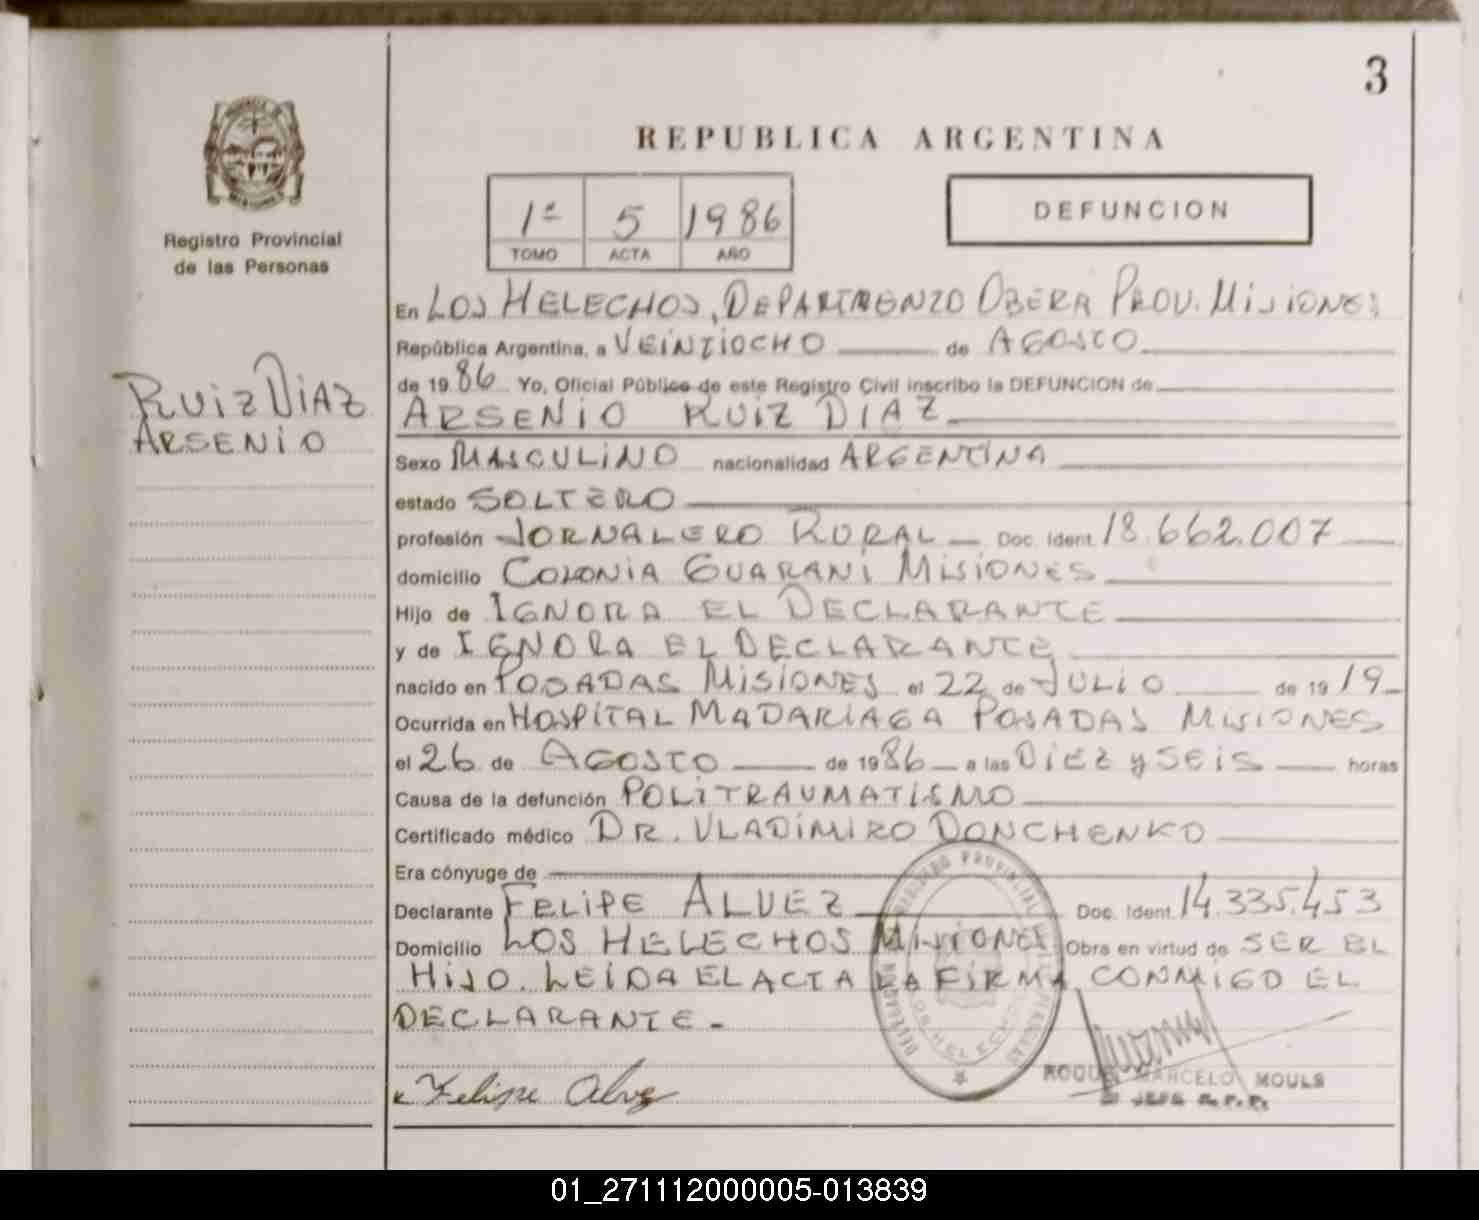 3
REPUBLICA ARGENTINA
Registro Provincial
de las Personas
1ª 5 1986
TOMO ACTA AÑO
DEFUNCION
RUIZ DIAZ
ARSENIO
En LOS HELECHOS, DEPARTAMENTO OBERA PROV. MISIONES
República Argentina, a VEINTIOCHO de AGOSTO
de 1986 Yo, Oficial Público de este Registro Civil inscribo la DEFUNCION de
ARSENIO RUIZ DIAZ
Sexo MASCULINO nacionalidad ARGENTINA
estado SOLTERO
profesión JORNALERO RURAL Doc. Ident. 18.662.007
domicilio COLONIA GUARANI MISIONES
Hijo de IGNORA EL DECLARANTE
y de IGNORA EL DECLARANTE
nacido en POSADAS MISIONES el 22 de JULIO de 19 19
Ocurrida en HOSPITAL MADARIAGA POSADAS MISIONES
el 26 de AGOSTO de 1986 a las DIEZ y SEIS horas
Causa de la defunción POLITRAUMATISMO
Certificado médico DR. VLADIMIRO DONCHENKO
Era cónyuge de
Declarante FELIPE ALVEZ Doc. Ident. 14.335.453
Domicilio LOS HELECHOS MISIONES Obra en virtud de SER EL
HIJO. LEIDA EL ACTA LA FIRMA CONMIGO EL
DECLARANTE.-
Felipe Alvez
REGISTRO PROVINCIAL
DELEGACION
LOS HELECHOS
ROQUE MARCELO MOULS
JEFE R.P.P.
01_271112000005-013839